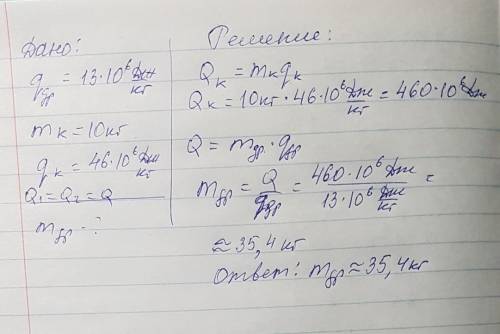 Дано:
q др = 13·10⁶ Дж/кг
mк = 10кг
qк = 46·10⁶ Дж/кг
Q₁ = Q₂ = Q
m др - ?
Решение:
Qк = mк qк
Qк = 10кг · 46·10⁶ Дж/кг = 460·10⁶ Дж
Q = m др · q др
m др = Q / q др = 460·10⁶ Дж / 13·10⁶ Дж/кг =
≈ 35,4 кг
Ответ: m др ≈ 35,4 кг